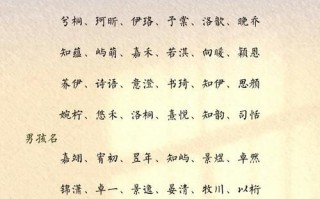 兮桐、珂昕、伊珞、予棠、洛歆、晚乔
知蕴、屿萌、嘉禾、若淇、向暖、颖恩
苏伊、诗语、意澄、书琦、知伊、思颜
婉柠、悠禾、洛桐、熹悦、知韵、司恬
男孩名
嘉翊、宥初、昱年、知屿、景煜、卓然
锦潇、卓一、景逸、晏清、牧川、以桁